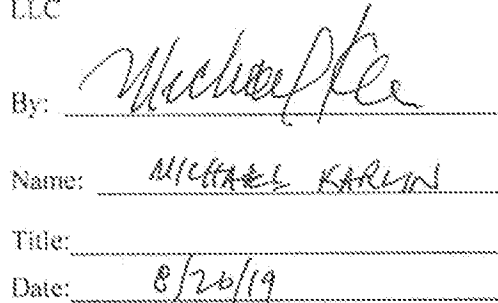 LLC
By: Michael
Name: MICHAEL KARLIN
Title:
Date: 8/20/19